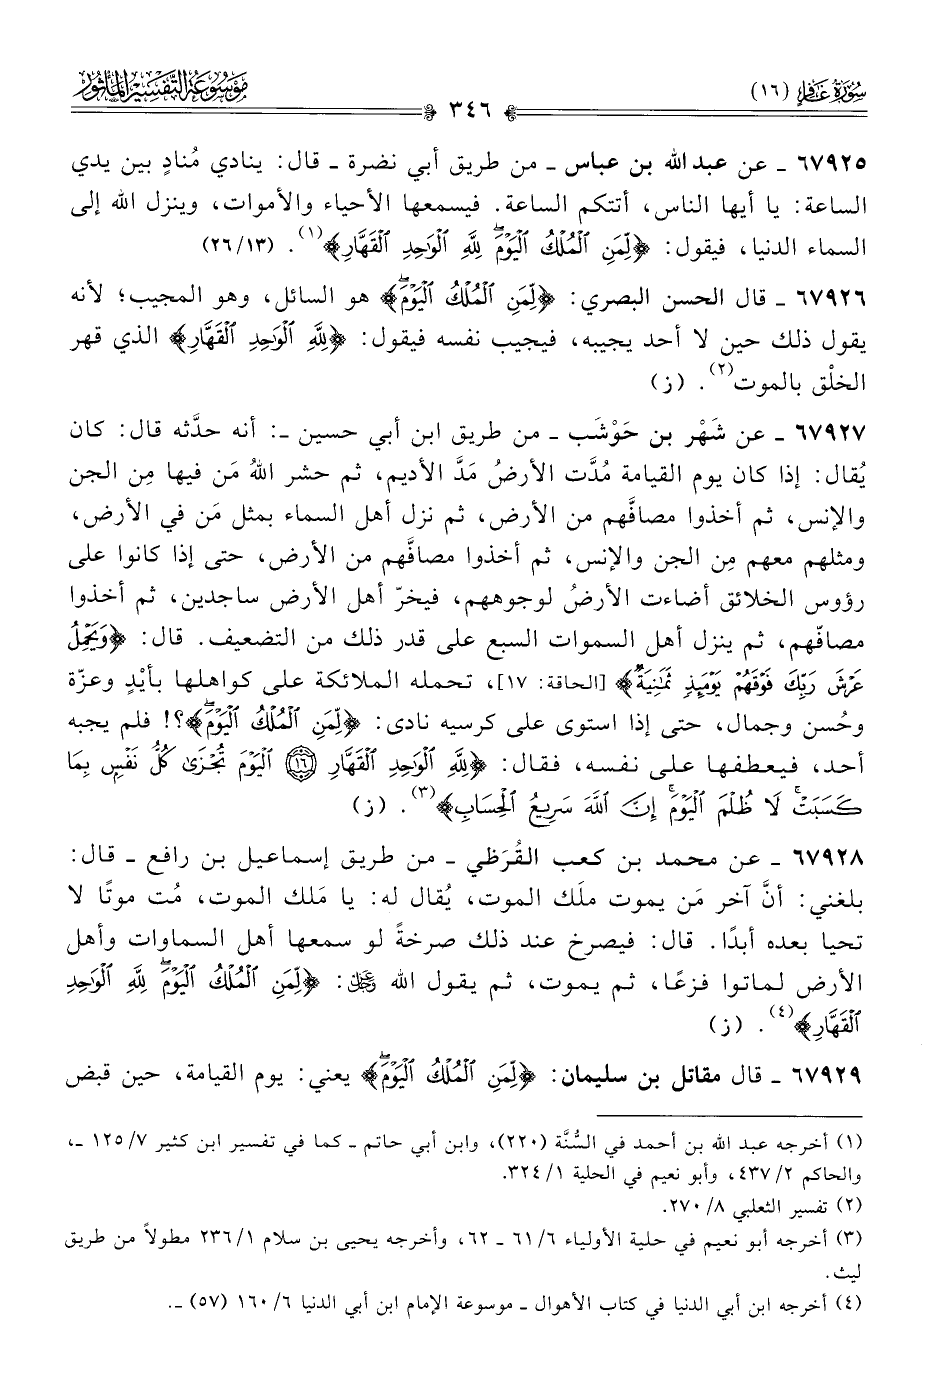 سُورَةُ غَافِرٍ (١٦)
٣٤٦
مَوْسُوعَةُ التَّفْسِيرِ المَأْثُورِ
٦٧٩٢٥ ـ عن عبد الله بن عباس ـ من طريق أبي نضرة ـ قال: ينادي مُنادٍ بين يدي
الساعة: يا أيها الناس، أتتكم الساعة. فيسمعها الأحياء والأموات، وينزل الله إلى
السماء الدنيا، فيقول: ﴿لِّمَنِ ٱلْمُلْكُ ٱلْيَوْمَۖ لِلَّهِ ٱلْوَٰحِدِ ٱلْقَهَّارِ﴾(١). (٢٦/١٣)
٦٧٩٢٦ ـ قال الحسن البصري: ﴿لِّمَنِ ٱلْمُلْكُ ٱلْيَوْمَۖ﴾ هو السائل، وهو المجيب؛ لأنه
يقول ذلك حين لا أحد يجيبه، فيجيب نفسه فيقول: ﴿لِلَّهِ ٱلْوَٰحِدِ ٱلْقَهَّارِ﴾ الذي قهر
الخلْق بالموت(٢). (ز)
٦٧٩٢٧ ـ عن شَهْر بن حَوْشَب ـ من طريق ابن أبي حسين ـ: أنه حدَّثه قال: كان
يُقال: إذا كان يوم القيامة مُدَّت الأرضُ مَدَّ الأديم، ثم حشر اللهُ مَن فيها مِن الجن
والإنس، ثم أخذوا مصافَّهم من الأرض، ثم نزل أهل السماء بمثل مَن في الأرض،
ومثلهم معهم مِن الجن والإنس، ثم أخذوا مصافَّهم من الأرض، حتى إذا كانوا على
رؤوس الخلائق أضاءت الأرضُ لوجوههم، فيخرّ أهل الأرض ساجدين، ثم أخذوا
مصافّهم، ثم ينزل أهل السموات السبع على قدر ذلك من التضعيف. قال: ﴿وَيَحْمِلُ
عَرْشَ رَبِّكَ فَوْقَهُمْ يَوْمَئِذٍ ثَمَٰنِيَةٌ﴾ [الحاقة: ١٧]، تحمله الملائكة على كواهلها بأَيْدٍ وعزّة
وحُسن وجمال، حتى إذا استوى على كرسيه نادى: ﴿لِّمَنِ ٱلْمُلْكُ ٱلْيَوْمَۖ﴾؟! فلم يجبه
أحد، فيعطفها على نفسه، فقال: ﴿لِلَّهِ ٱلْوَٰحِدِ ٱلْقَهَّارِ ١٦ ٱلْيَوْمَ تُجْزَىٰ كُلُّ نَفْسٍۭ بِمَا
كَسَبَتْۚ لَا ظُلْمَ ٱلْيَوْمَۚ إِنَّ ٱللَّهَ سَرِيعُ ٱلْحِسَابِ﴾(٣). (ز)
٦٧٩٢٨ ـ عن محمد بن كعب القُرَظي ـ من طريق إسماعيل بن رافع ـ قال:
بلغني: أنَّ آخر مَن يموت ملَك الموت، يُقال له: يا مَلك الموت، مُت موتًا لا
تحيا بعده أبدًا. قال: فيصرخ عند ذلك صرخةً لو سمعها أهل السماوات وأهل
الأرض لماتوا فزعًا، ثم يموت، ثم يقول الله ﷿: ﴿لِّمَنِ ٱلْمُلْكُ ٱلْيَوْمَۖ لِلَّهِ ٱلْوَٰحِدِ
ٱلْقَهَّارِ﴾(٤). (ز)
٦٧٩٢٩ ـ قال مقاتل بن سليمان: ﴿لِّمَنِ ٱلْمُلْكُ ٱلْيَوْمَۖ﴾ يعني: يوم القيامة، حين قبض
(١) أخرجه عبد الله بن أحمد في السُّنَّة (٢٢٠)، وابن أبي حاتم ـ كما في تفسير ابن كثير ٧/ ١٢٥ ـ،
والحاكم ٢/ ٤٣٧، وأبو نعيم في الحلية ١/ ٣٢٤.
(٢) تفسير الثعلبي ٨/ ٢٧٠.
(٣) أخرجه أبو نعيم في حلية الأولياء ٦/ ٦١ ـ ٦٢، وأخرجه يحيى بن سلام ١/ ٢٣٦ مطولاً من طريق
ليث.
(٤) أخرجه ابن أبي الدنيا في كتاب الأهوال ـ موسوعة الإمام ابن أبي الدنيا ٦/ ١٦٠ (٥٧) ـ.